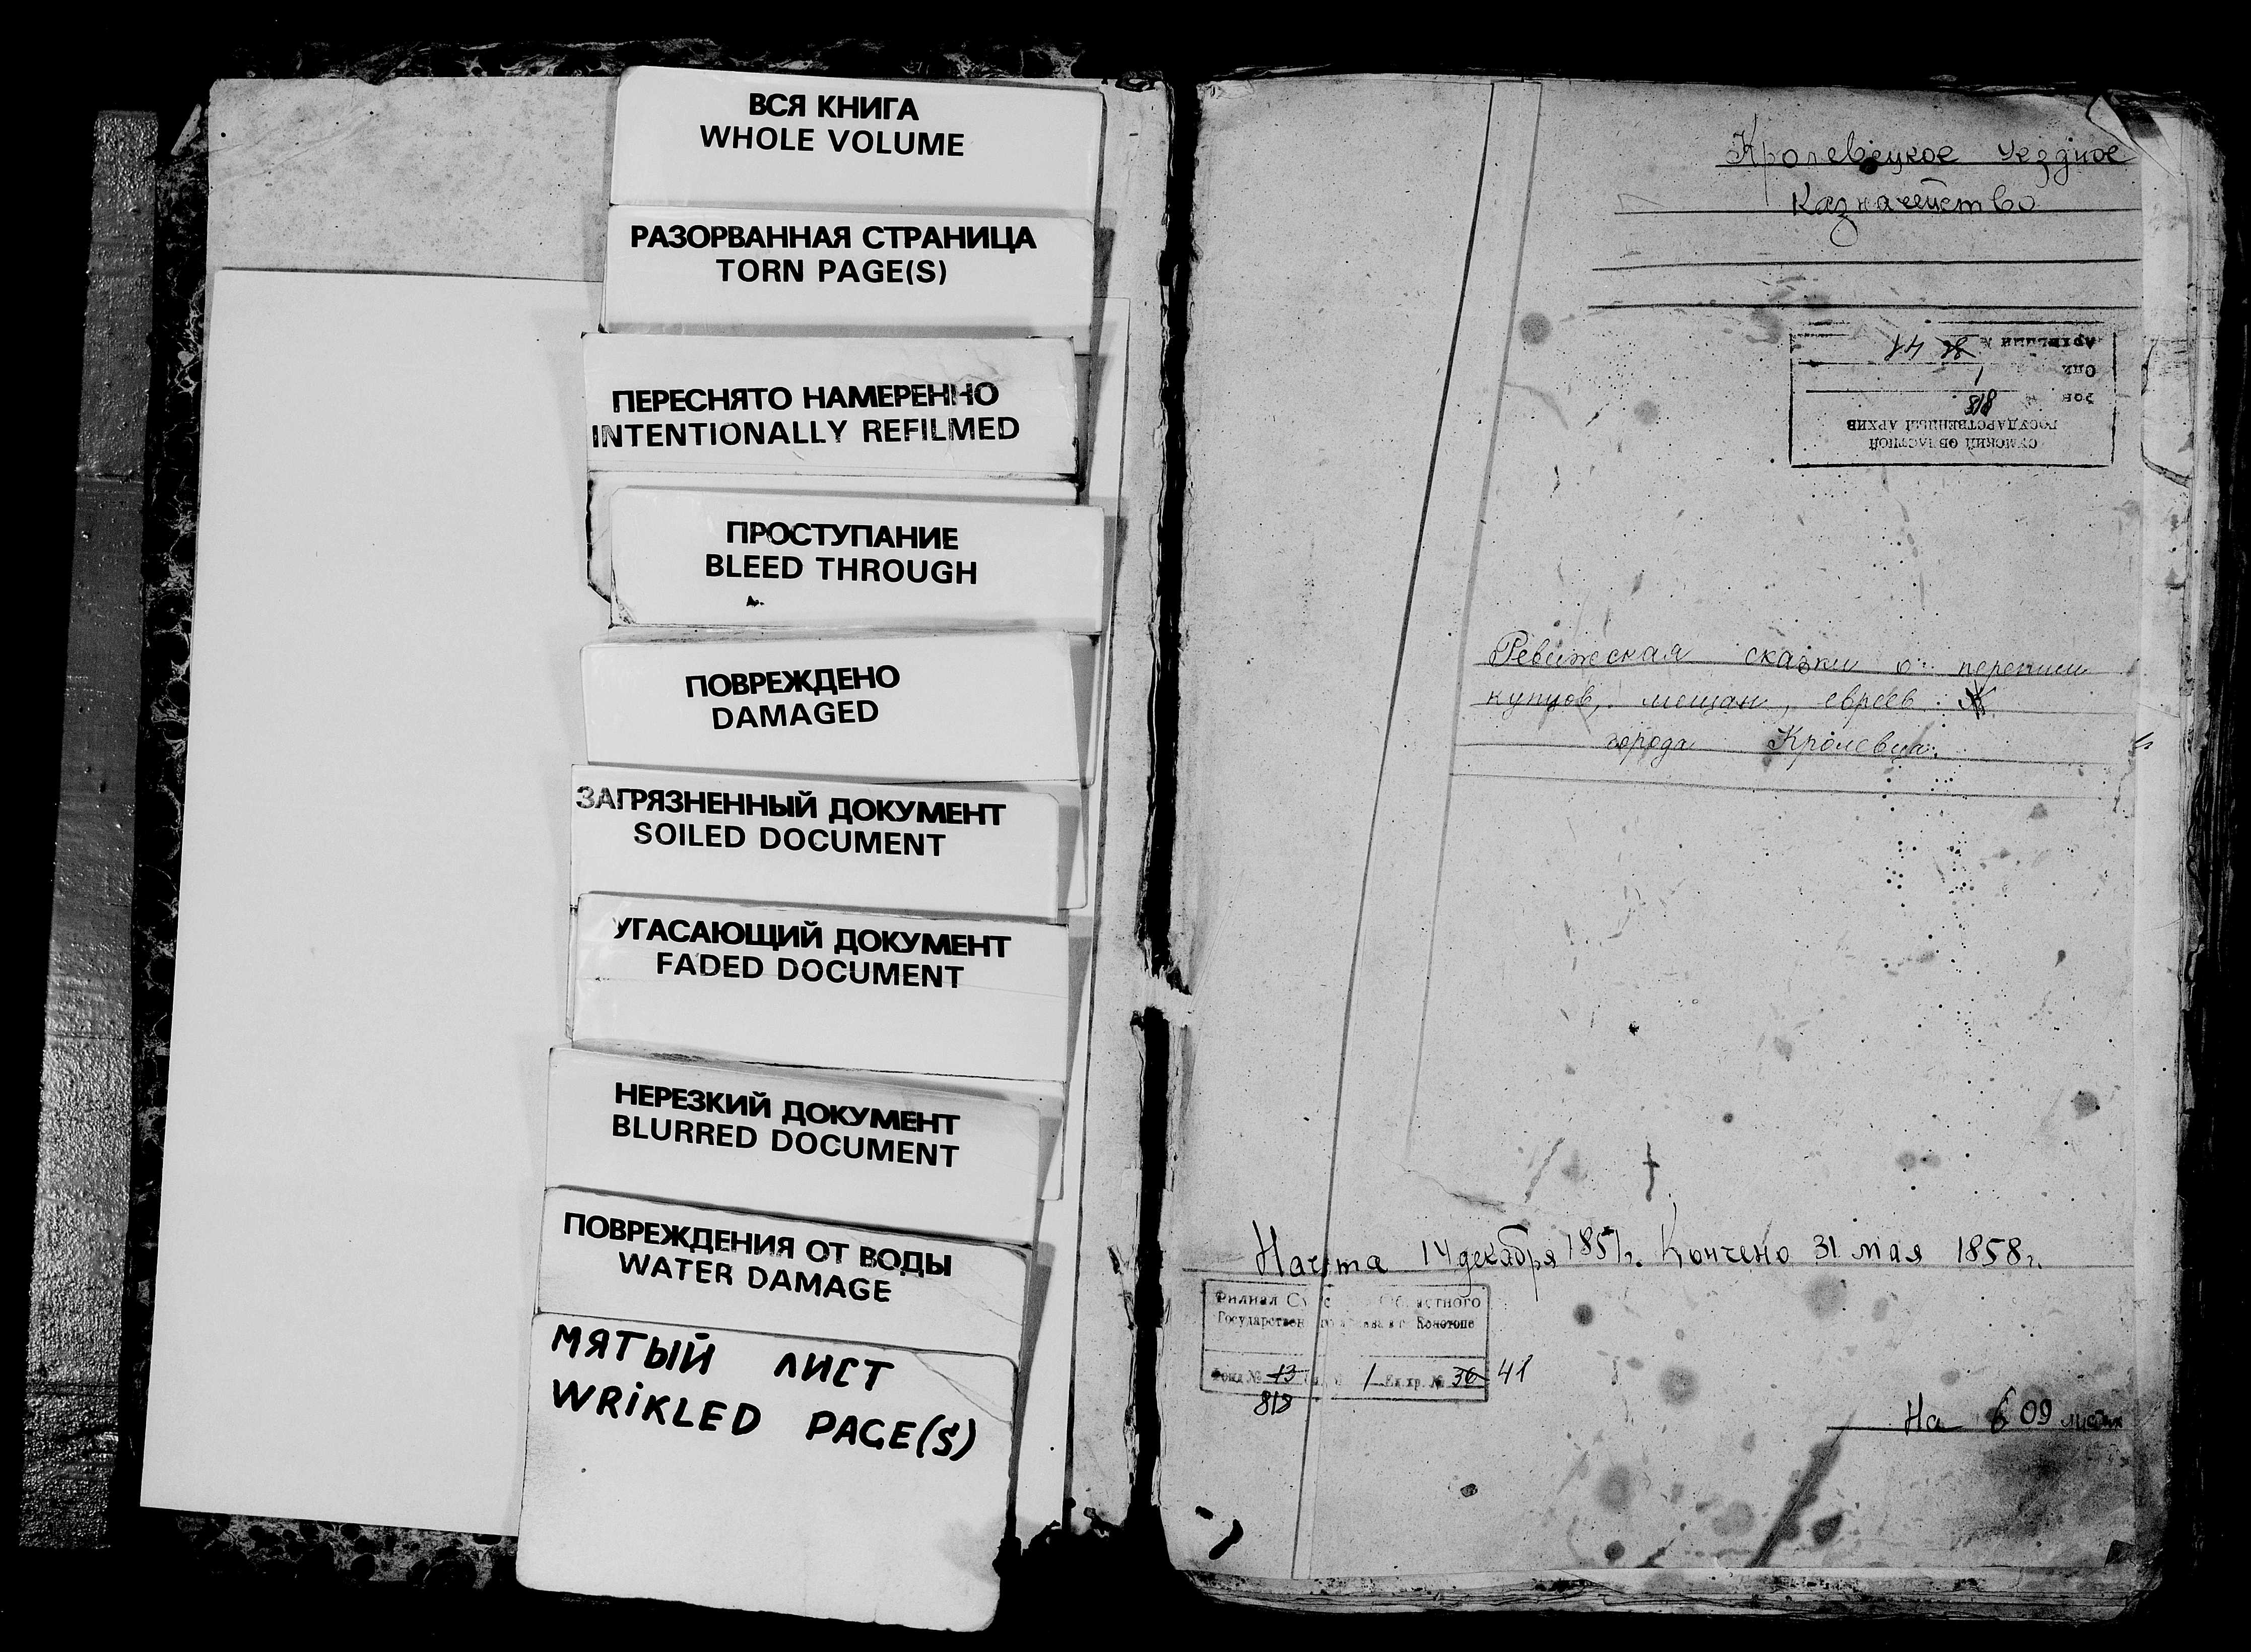 ВСЯ КНИГА
WHOLE VOLUME
РАЗОРВАННАЯ СТРАНИЦА
TORN PAGE(S)
ПЕРЕСНЯТО НАМЕРЕННО
INTENTIONALLY REFILMED
ПРОСТУПАНИЕ
BLEED THROUGH
ПОВРЕЖДЕНО
DAMAGED
ЗАГРЯЗНЕННЫЙ ДОКУМЕНТ
SOILED DOCUMENT
УГАСАЮЩИЙ ДОКУМЕНТ
FADED DOCUMENT
НЕРЕЗКИЙ ДОКУМЕНТ
BLURRED DOCUMENT
ПОВРЕЖДЕНИЯ ОТ ВОДЫ
WATER DAMAGE
МЯТЫЙ ЛИСТ
WRIKLED PAGE(S)
Кролевецкое Уездное
Казначейство
СУМСКИЙ ОБЛАСТНОЙ
ГОСУДАРСТВЕННЫЙ АРХИВ
818
Опи. 1
Ревижская сказки о переписи
купцов, мещан, евреев
города Кролевца.
Начата 14 декабря 1857г. Кончено 31 мая 1858г.
Филиал Областного
Конотопе
Фонд № 13 1 Ед. хр. № 36 41
818
На 609 листах